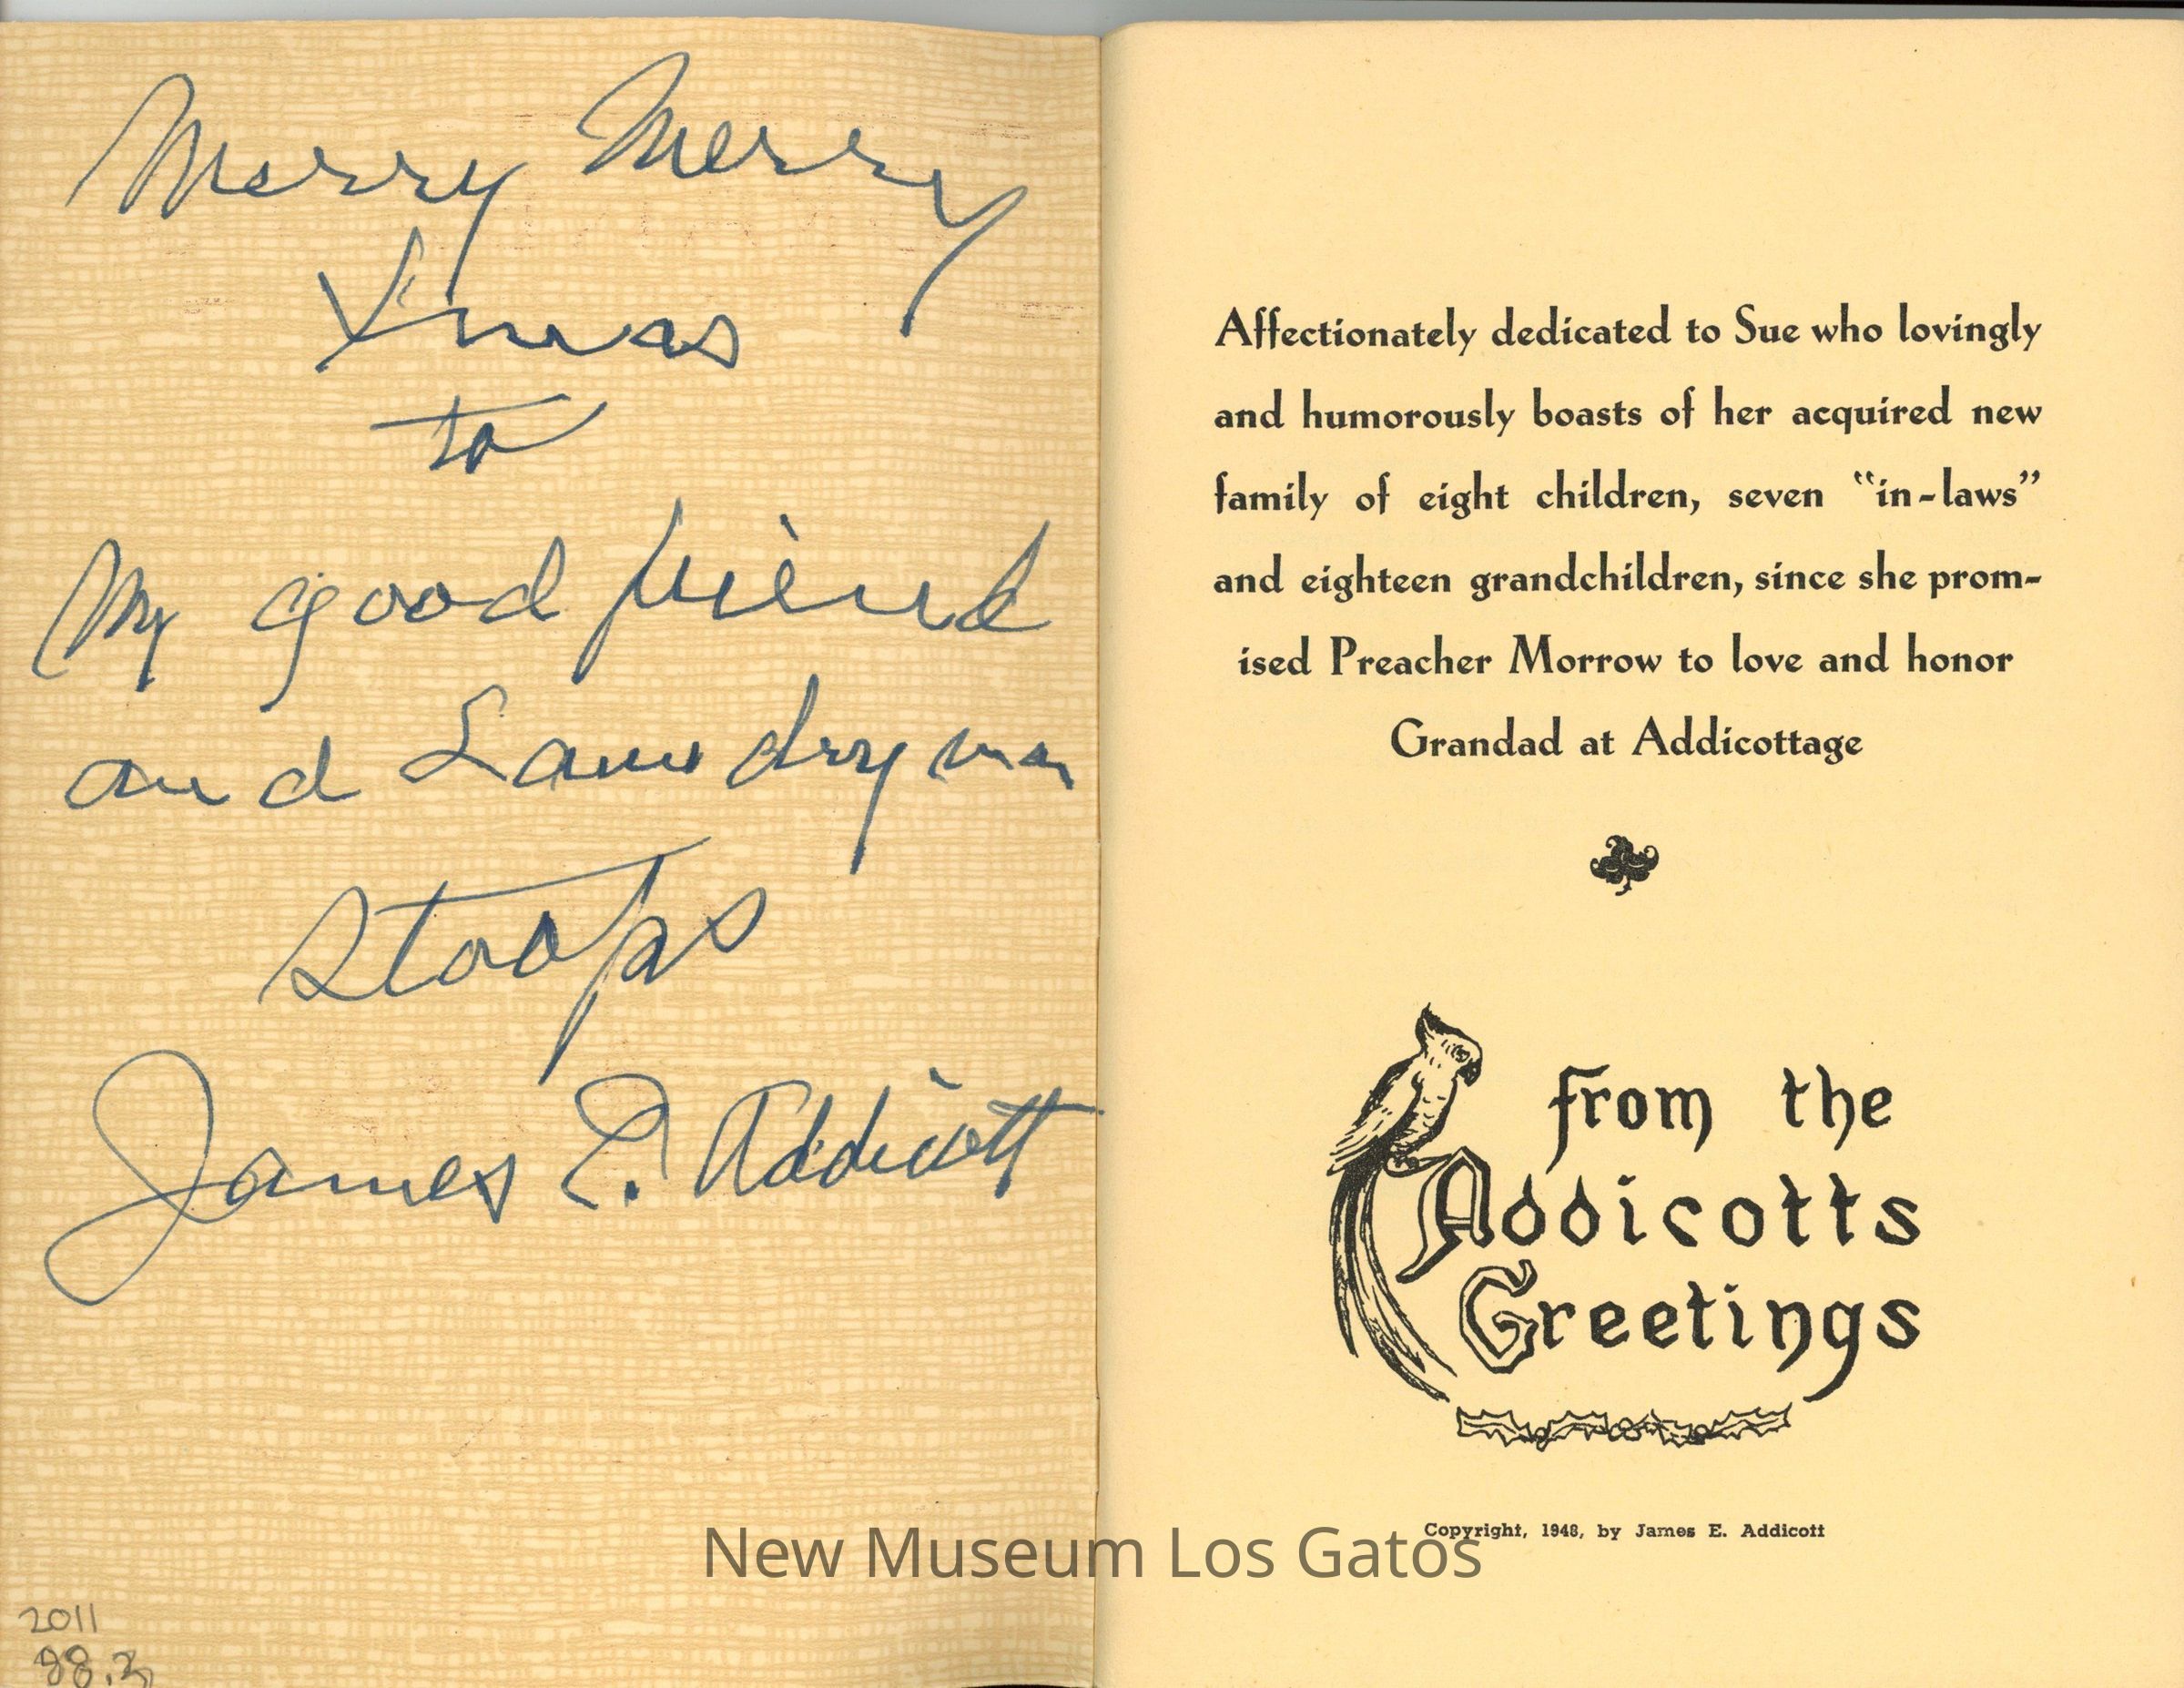 Merry Merry
Xmas
to
My good friend
and Laundryman
Stoops
James E. Addicott
2011
Affectionately dedicated to Sue who lovingly
and humorously boasts of her acquired new
family of eight children, seven “in-laws”
and eighteen grandchildren, since she prom-
ised Preacher Morrow to love and honor
Grandad at Addicottage
from the
Addicotts
Greetings
Copyright, 1948, by James E. Addicott
New Museum Los Gatos